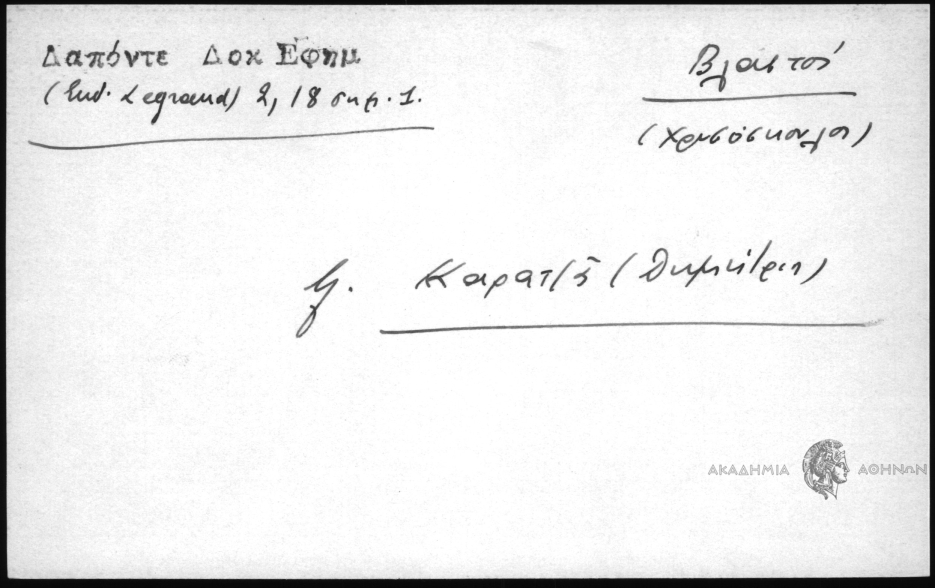 Δαπόντε Δοκ Εφημ
(Εκδ. Legrand) 2, 18 σημ. 1.
Βλαστοί
(Χρυσόσκουλοι)
Καρατζᾶ (Δημήτριο)
ΑΚΑΔΗΜΙΑ ΑΘΗΝΩΝ